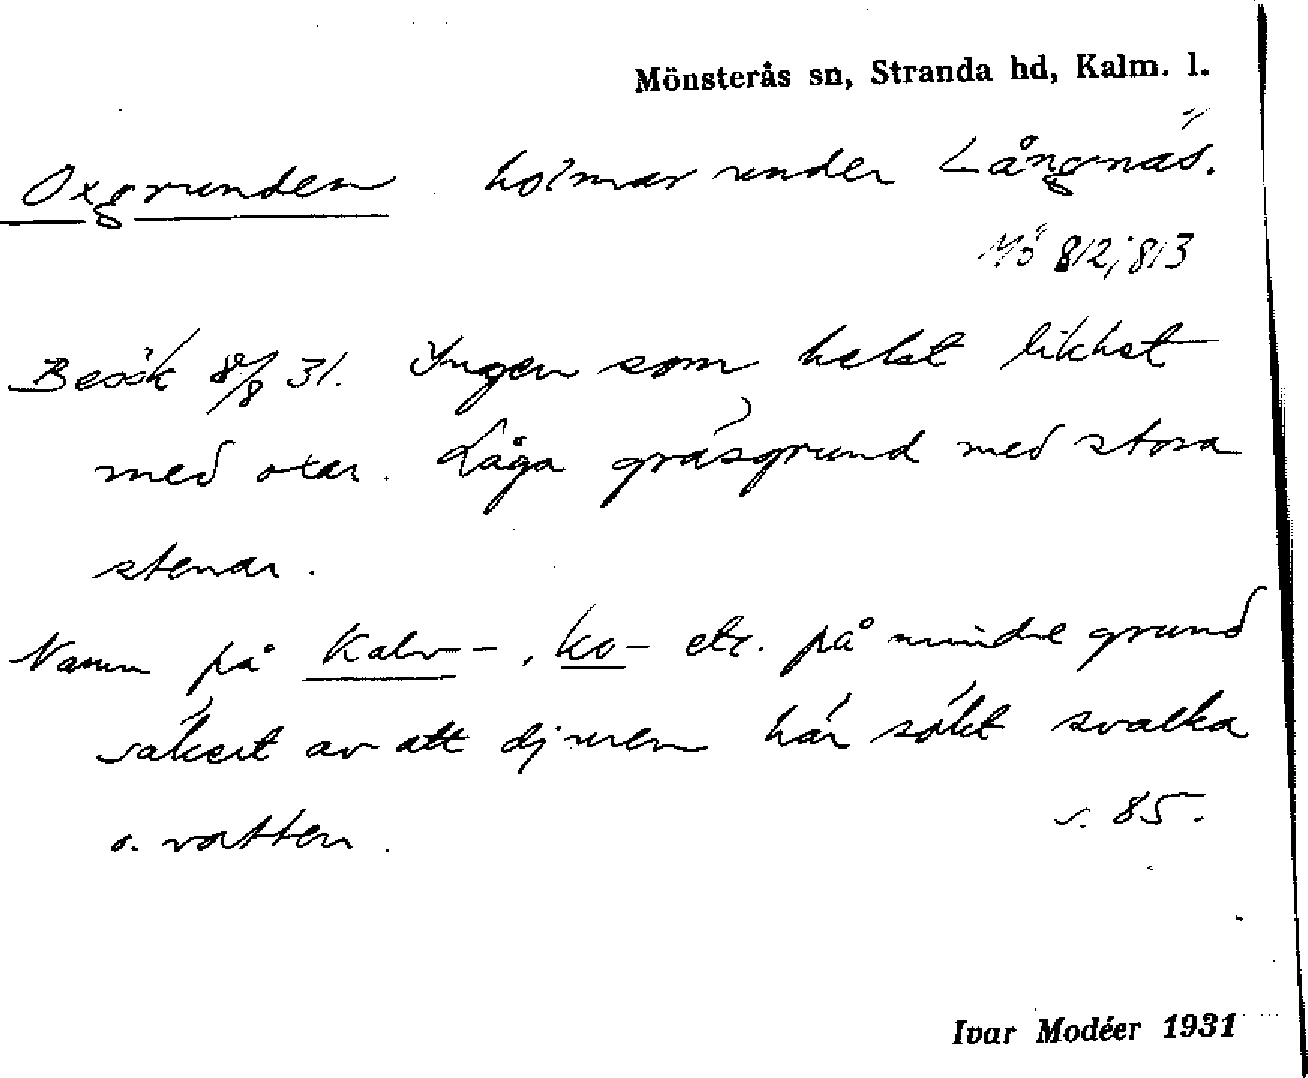 Mönsterås sn, Stranda hd, Kalm. l.
Oxgrunden holmar under Långnäs.
Mö 812; 813
Besök 8/8 31. Ingen som helst likhet
med oxar. Låga gräsgrund med stora
stenar.
Namn på Kalv-, ko- etc. på mindre grund
säkert av att djuren här sökt svalka
o. vatten.
s. 85.
Ivar Modéer 1931